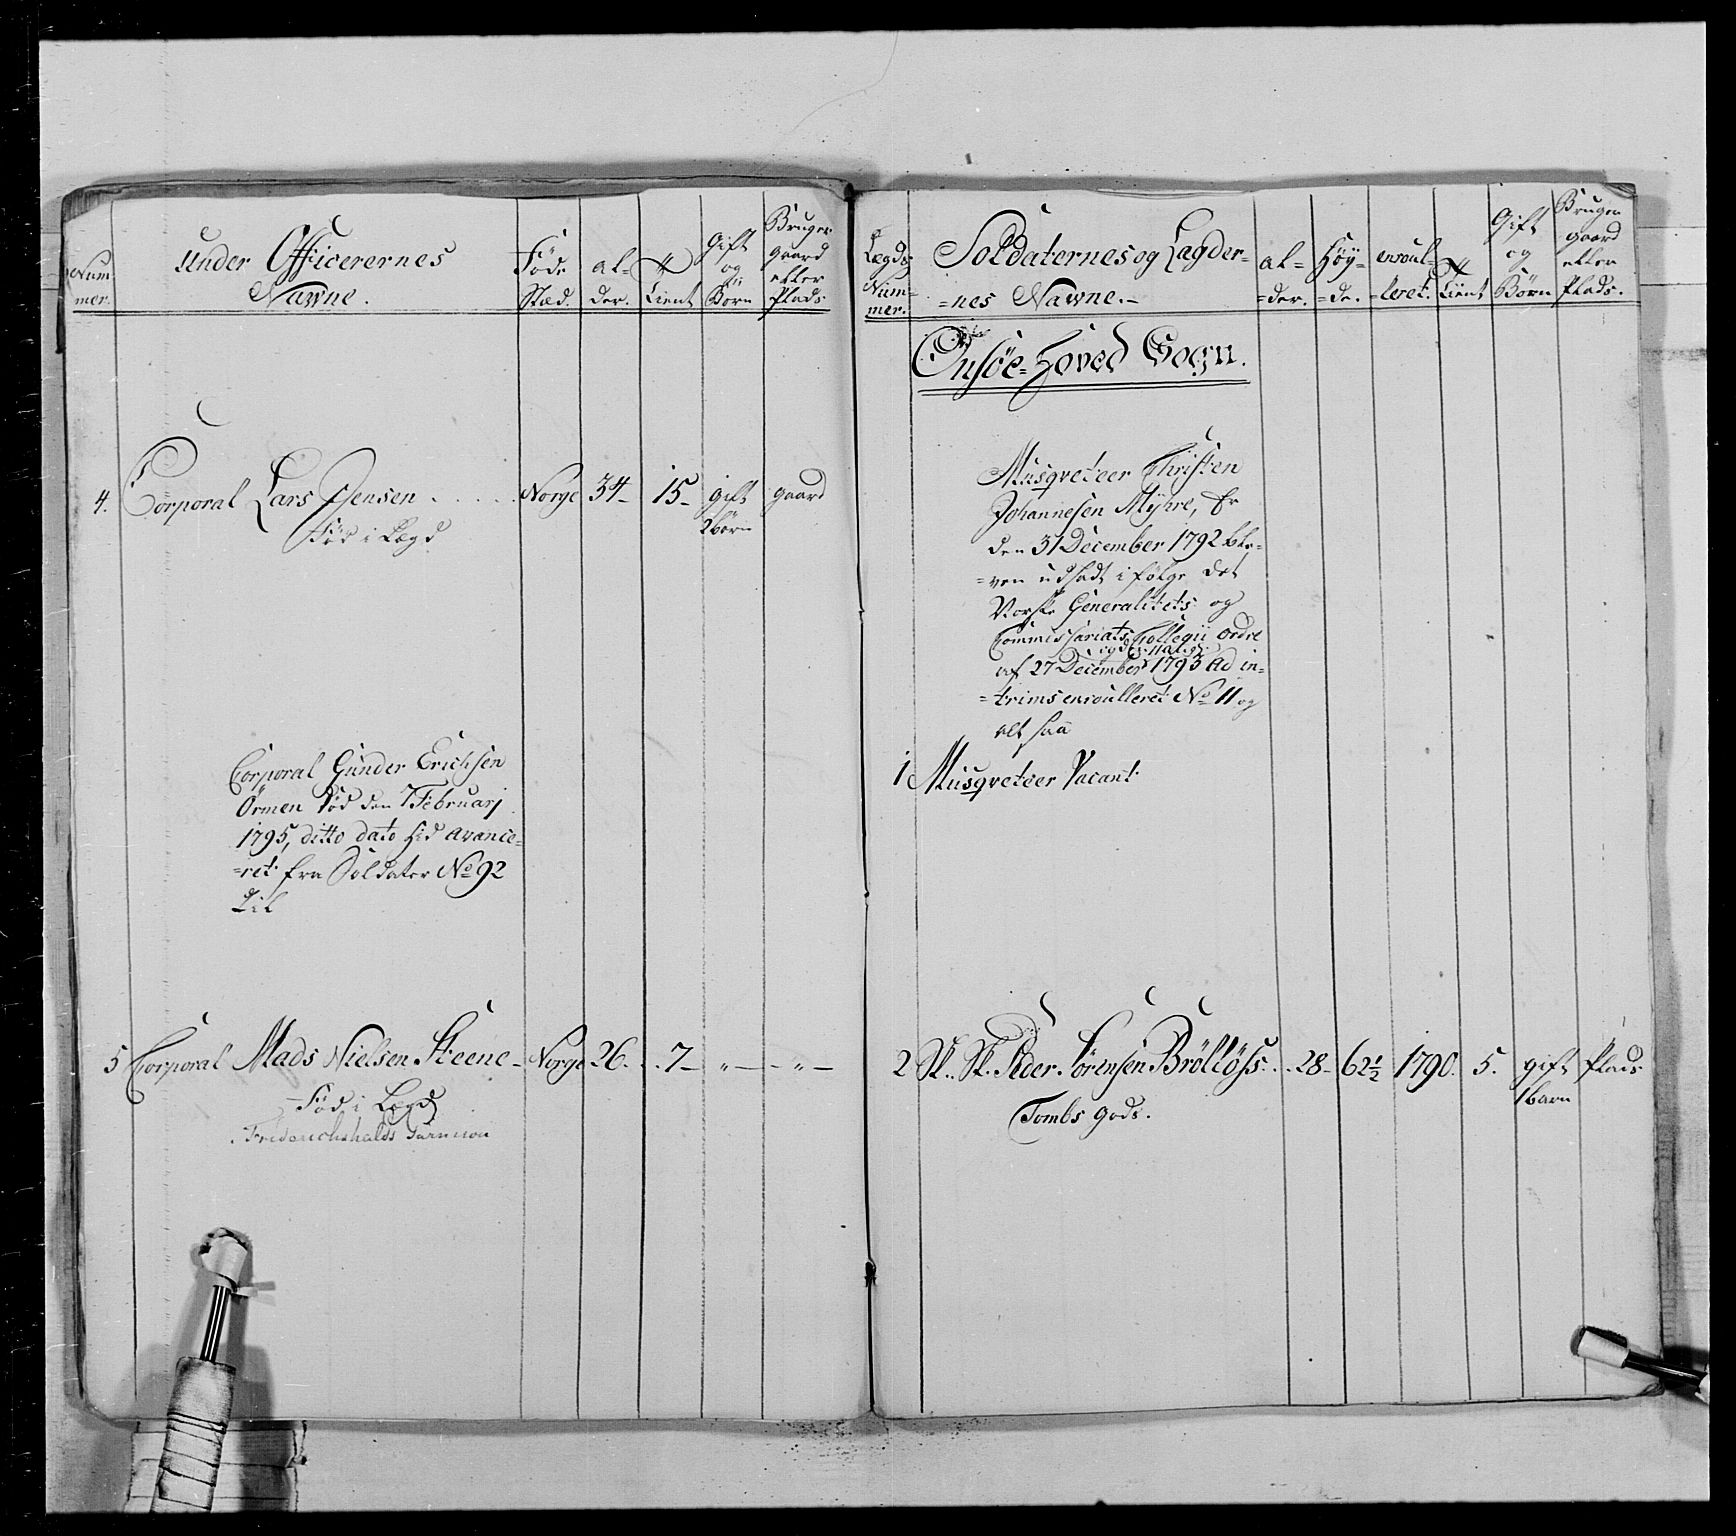 Num
mer.
Under Officerernes
Nawne.
Føde
Stæd.
al-
der.
tient
Gift
og
Børn
Bruger
gaard
eller
Plads
4. Corporal Lars Jensen . . . . . Norge 34- 15- gift gaard
Fød i Legd 2 børn
Corporal Gunder Erichsen
Örmen død den 7 Februarj
1795, ditto dato hid avance-
=ret fra Soldater No 92
til
5 Corporal Mads Nielsen Steene- Norge 26. . 7- „- -„-
Fød i Legd
Friderichshalds Garnison
Lægds
Num-
mer.
Soldaternes og Lægder-
=nes Nawne.-
al=
=der.
Höy=
=de.
enroul=
=leret.
tient
Gift
og
Börn
Bruger
gaard
eller
Plads.
Onsöe-Hoved Sogn.
Musqveteer Christen
Johannesen Myhre, Er
den 31 December 1792 ble=
=ven udsadt i følge det
Norske Generalitets og
Commissariats Collegii Ordre
af 27 December 1793 Ad in=
=trims enroulleret No 11 og
alt saa
1 Musqveteer Vacant.
2 Sk. Sk. Peder Sörensen Bröllöss. . . 28- 62½ 1790. 5. gift Plads
Tombs gods. 1 barn